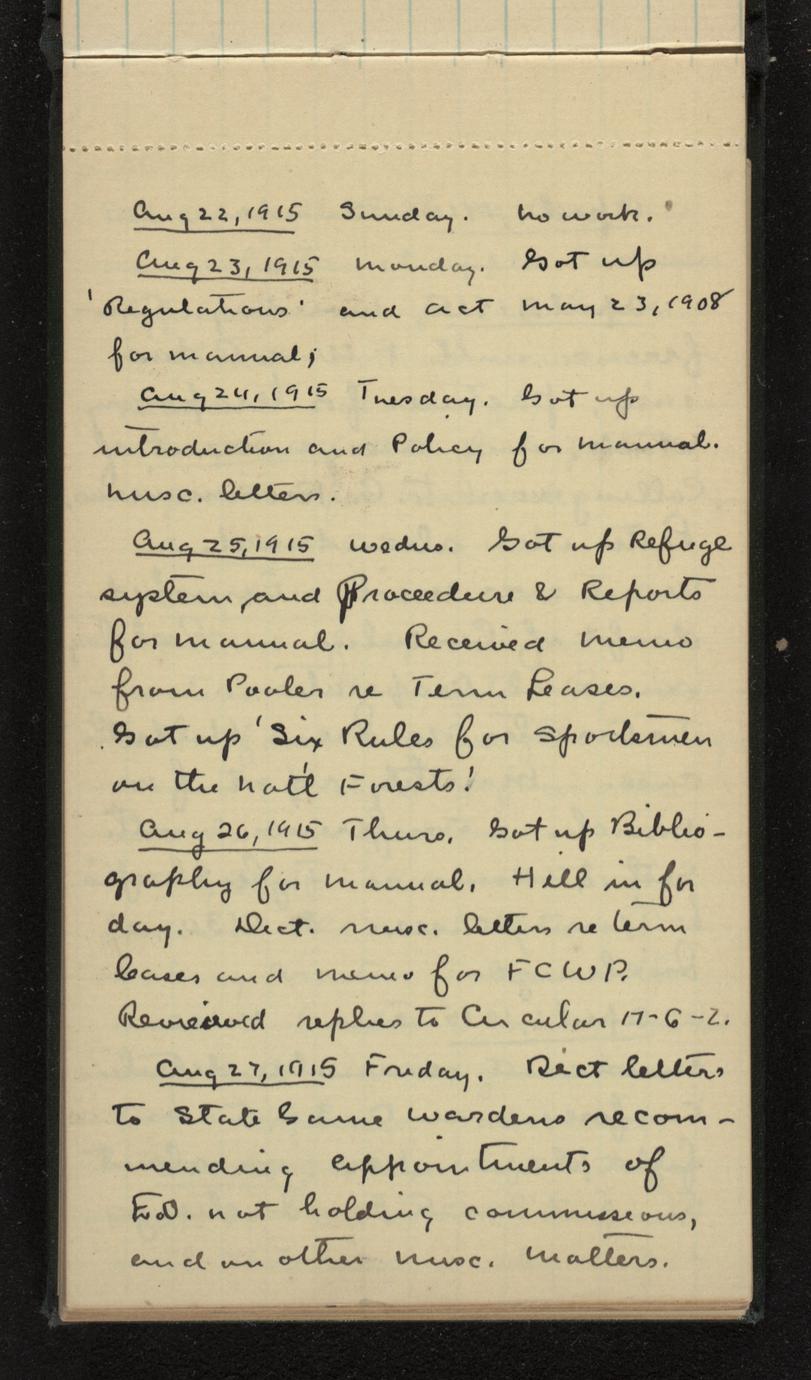 Aug 22, 1915 Sunday. No work.
Aug 23, 1915 Monday. Got up
'Regulations' and Act May 23, 1908
for manual;
Aug 24, 1915 Tuesday. Got up
introduction and Policy for manual.
Misc. letters.
Aug 25, 1915 Wednes. Got up Refuge
system, and Proceedure & Reports
for manual. Received memo
from Pooler re Term Leases.
Got up 'Six Rules for Sportsmen
on the Nat'l Forests.'
Aug 26, 1915 Thurs. Got up Biblio-
graphy for manual. Hill in for
day. Dict. misc. letters re term
leases and memo for FCWP.
Reviewed replies to Circular 17-6-2.
Aug 27, 1915 Friday. Dict letters
to State Game Wardens recom-
mending appointments of
F.O. not holding commissions,
and on other misc. matters.